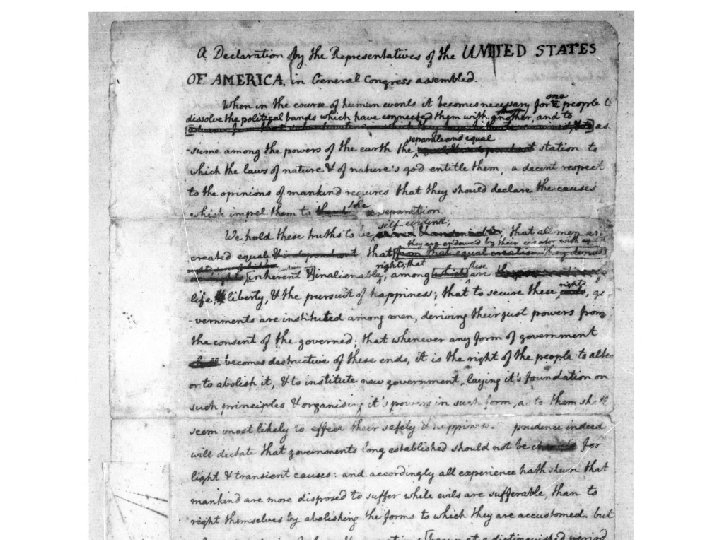 A Declaration by the Representatives of the UNITED STATES
OF AMERICA, in General Congress assembled.
When in the course of human events it becomes necessary for one people to
dissolve the political bands which have connected them with another, and to
as
-sume among the powers of the earth the separate and equal station to
which the laws of nature & of nature's god entitle them, a decent respect
to the opinions of mankind requires that they should declare the causes
which impel them to the separation.
We hold these truths to be self-evident; that all men are
created equal that they are endowed by their creator with
inherent & inalienable rights; that among these are
life, liberty, & the pursuit of happiness; that to secure these rights, go
-vernments are instituted among men, deriving their just powers from
the consent of the governed; that whenever any form of government
becomes destructive of these ends, it is the right of the people to alter
or to abolish it, & to institute new government, laying it's foundation on
such principles & organising it's powers in such form, as to them shall
seem most likely to effect their safety & happiness. prudence indeed
will dictate that governments long established should not be changed for
light & transient causes: and accordingly all experience hath shewn that
mankind are more disposed to suffer while evils are sufferable, than to
right themselves by abolishing the forms to which they are accustomed. but
at a distinguished period